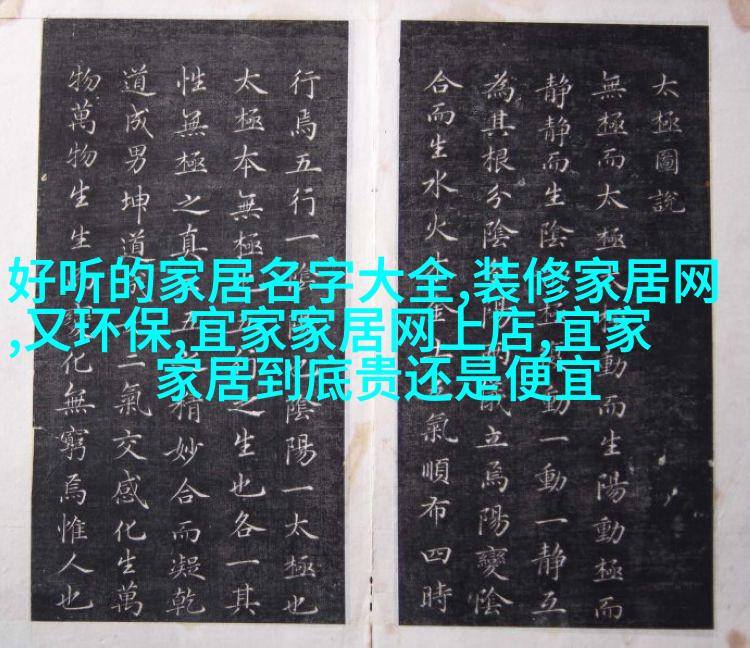 好听的家居名字大全,装修家居网
,又环保,宜家家居网上店,宜家
家居到底贵还是便宜
太極圖說
無極而太極太極動而生陽動極而
静静而生陰極動一動一静互
為其根分陰陽立焉陽變陰
合而生水火金氣順布四時
行焉五行一陰陽也陰陽一太極也
太極本無極五行之生也各一其
性無極之真五精妙合而凝乾
道成男坤道二氣交感化生萬
物萬物生生變化無窮焉惟人也